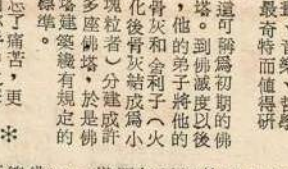 最奇特而值得研
、音樂、哲學
這可稱爲初期的佛
塔。到佛滅度以後
，他的弟子將他的
骨灰和舍利子（火
化後骨灰結成爲小
塊粒者）分建成許
多座佛塔，於是佛
塔建築纔有規定的
標準。
忘了痛苦，更